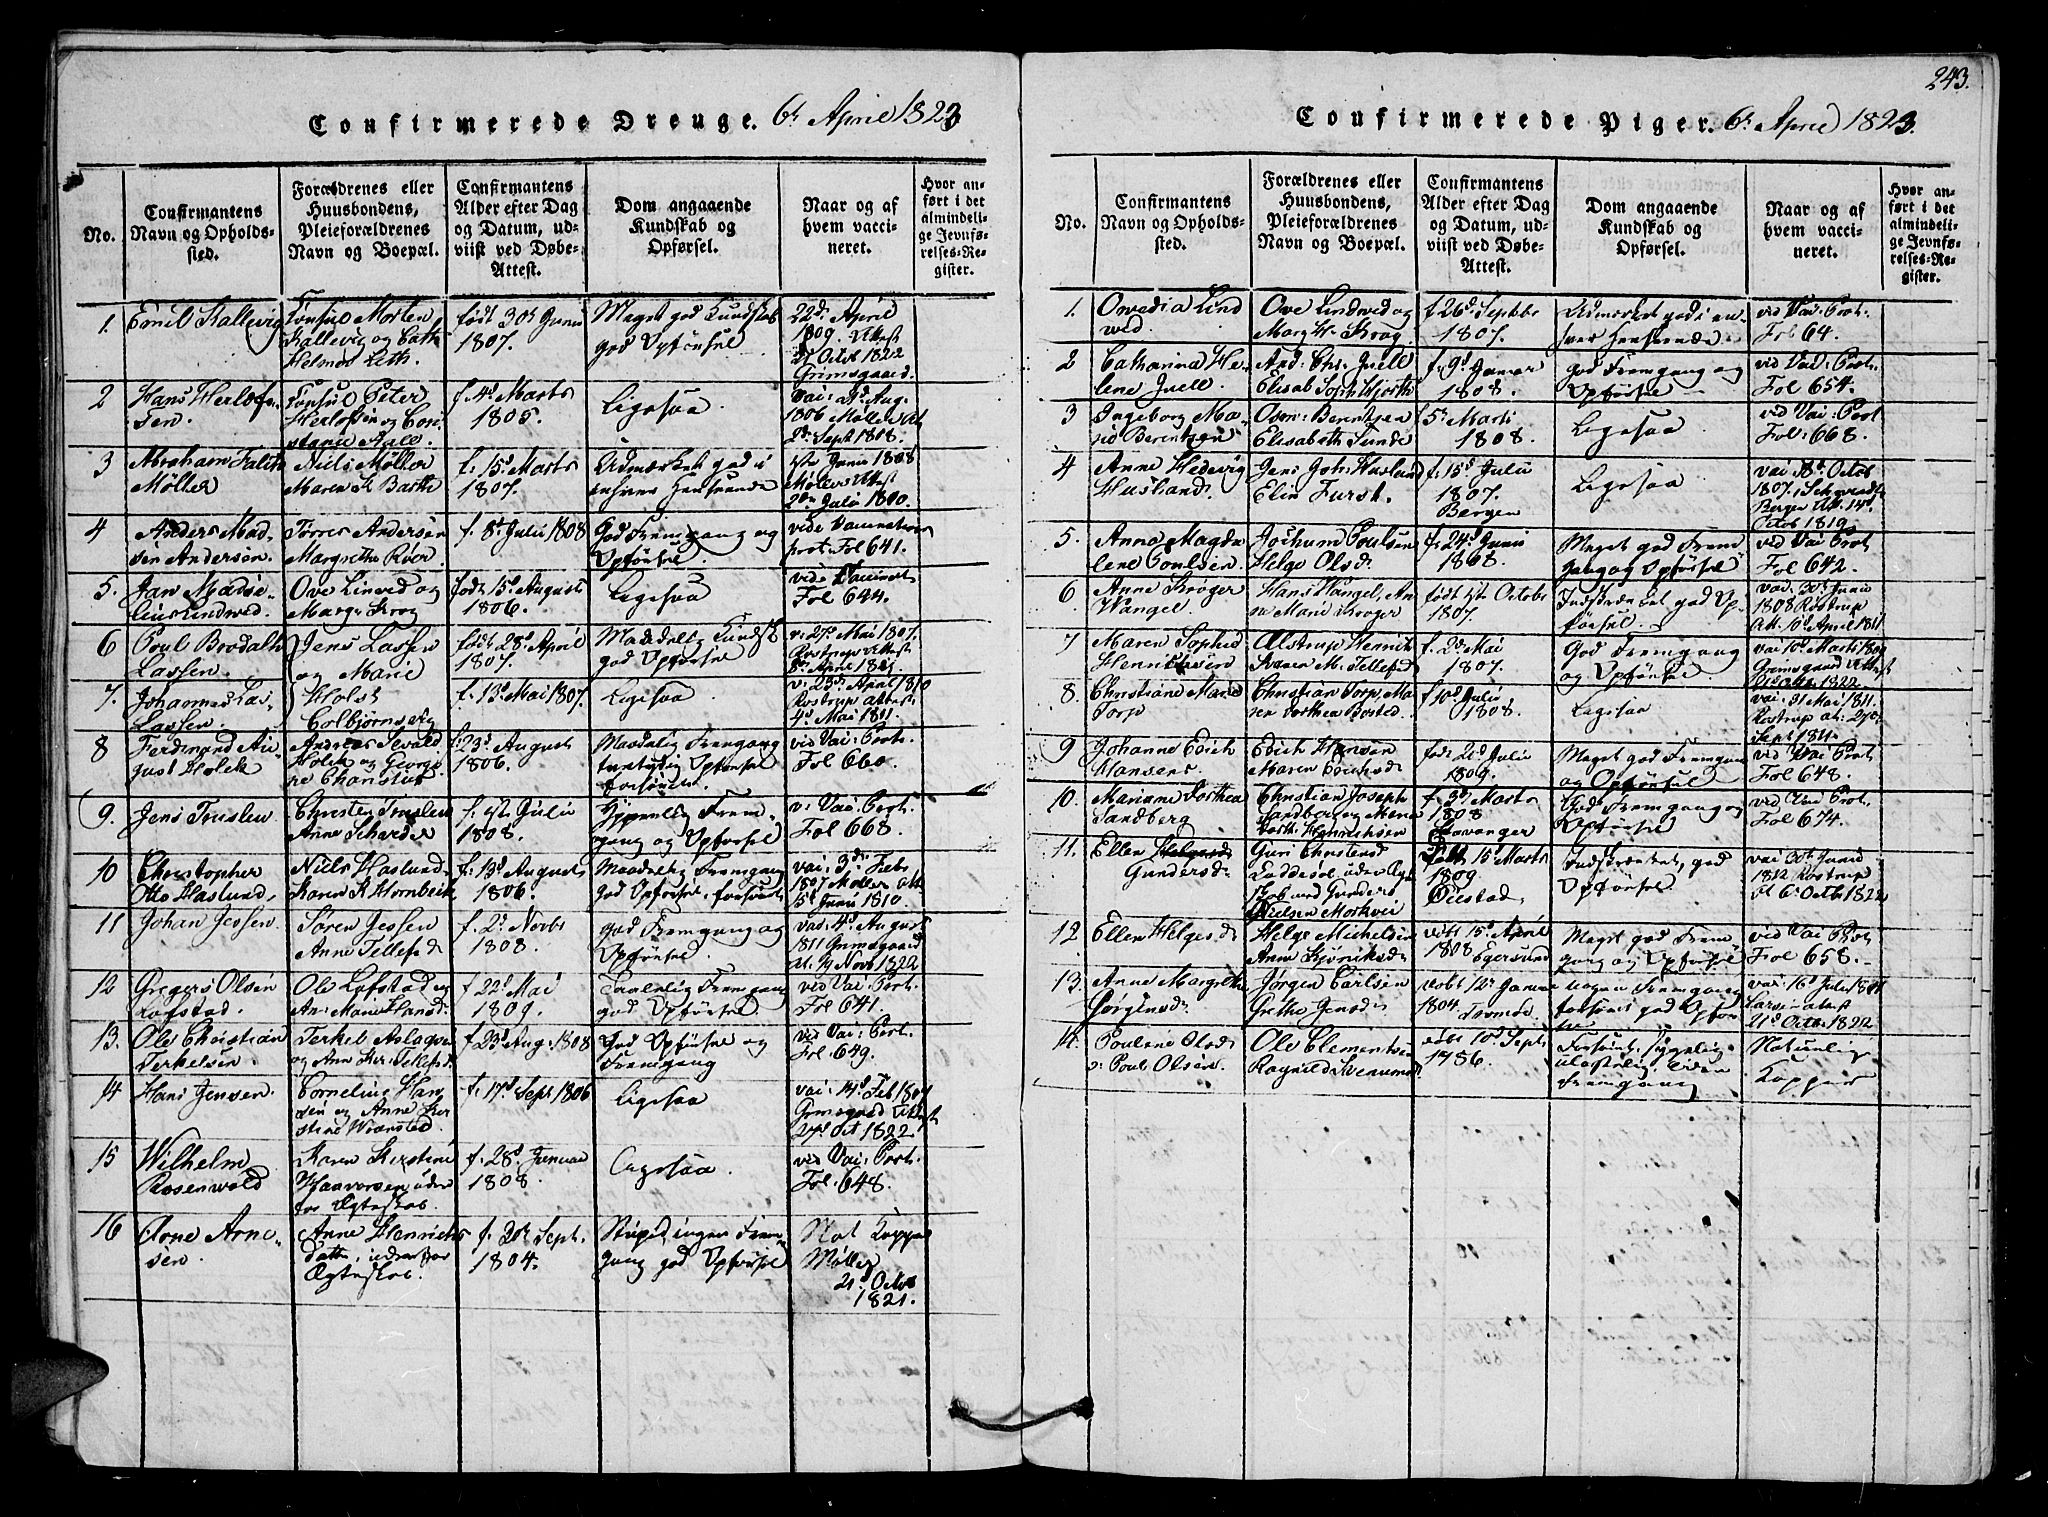 243.
Confirmerede Drenge. 6t April 1823
No.
Confirmantens
Navn og Opholds-
sted.
Forældrenes eller
Huusbondens,
Pleieforældrenes
Navn og Boepæl.
Confirmantens
Alder efter Dag
og Datum, ud-
viist ved Døbe-
Attest.
Dom angaaende
Kundskab og
Opførsel.
Naar og af
hvem vacci-
neret.
Hvor an-
ført i det
almindeli-
ge Jevnfø-
relses-Re-
gister.
1. Emil Kallevig
Consul Morten
Kallevig og Cath
Helmer Leth.
født 30t Junii
1807.
Meget god Kundskab
god Opförsel
22d April
1809. Attest
21 Octob 1822
Grimsgaard.
2 Hans Herlofsen
Consul Peter
Herlofsen og Con
stance Aall.
f. 4d Marts
1805.
Ligesaa
1806 Møllers At
2d Sept 1808.
3 Abraham Falck
Møller
Niels Møller
Maren K Barth
f. 15d Marts
1807.
Udmærket god i
enhver Henseende
Junii 1808
Møllers Attest
1810.
4 Anders Mad
sen Andersen.
Torres Andersen
Margrethe Röer.
f. 8d Julii 1808
God Fremgang og
Opförsel.
vide Vaccinations
prot. Fol 641.
5.
Ove Lindved og
Margr Krog
født 15d August
1806.
Ligesaa
vide
Fol 644.
6 Poul Brodahl
Lassen.
Jens Lassen
og Marie
Holst
Colbjörnsvig
født 28d April
1807.
Maadelig Kundsk
god Opförsel
v. 27d Mai 1807.
Rostrup Attest
7. Johannes
Lassen.
f. 13d Mai 1807.
Ligesaa
v: 23d April 1810
Rostrup attest
4d Mai 1811.
8 Ferdinand Au
gust Holck
Andreas Sevald
Holck og Georgi
f. 23d August
1806.
Maadelig Fremgang
vid Vai: Prot.
Fol 660.
9. Jens Truslen
Christen Truslen
Anne
f. 1ste Julii
1808.
Fremgang og Opförsel
v: Vai: Prot.
Fol 668.
10 Christopher
Otto Haslund.
Niels Haslund
Karen K Hornbeck
f. 13d August
1806.
Maadelig Fremgang
god Opförsel
vai: 3d Feb
1807 Møller
5d Junii 1810.
11 Johan Jessen
Søren Jessen
Anne Tellefsd
f. 2d Novbr
1808.
god Fremgang og
Opförsel
vai. 4d August
1811 Grimsgaard
At. 14 Novb 1822
12 Gregers Olsen
Lofstad.
Ole Lofstad og
An: Marie Hansd.
f 22d Mai
1809.
Fremgang
god Opförsel
vid Vai: Prot.
Fol 641.
13. Ole Christian
Terkelsen
Terkel Aslagsen
og Ann Kir. Tellefsd.
f 23d Aug: 1808
God Opförsel og
Fremgang
vid Vai: Prot.
Fol. 649.
14 Hans Jensen
Cornelius Han
sen og Anne Ker
stine
f. 17d Sept 1806
Ligesaa
vai: 14d Feb 1807
Grimsgaard Attest
27d Oct 1822.
15 Wilhelm
Rosenvold
Karen Kirstine
Haavorsen uden
for Ægteskab.
f. 28d Januar
1808.
Ligesaa.
vid Vai: Prot.
Fol. 648.
16 Arne Arne-
sen.
Anne Henrichs
datter, udenfor
Ægteskab.
f. 20de Sept.
1804.
Stupid, ingen Frem
gang god Opförsel
Nat Kopper
Møller
21d Octob
1821.
Confirmerede Piger. 6t April 1823.
No.
Confirmantens
Navn og Opholds-
sted.
Forældrenes eller
Huusbondens,
Pleieforældrenes
Navn og Boepæl.
Confirmantens
Alder efter Dag
og Datum, ud-
viist ved Døbe-
Attest.
Dom angaaende
Kundskab og
Opførsel.
Naar og af
hvem vacci-
neret.
Hvor an-
ført i det
almindeli-
ge Jevnfø-
relses-Re-
gister.
1. Ovedia Lind
ved
Ove Lindved og
Marg H. Krog
f 26d Septbr
1807.
Udmærket god i en-
hver Henseende
vid Vai: Prot.
Fol 64.
2 Catharina He-
lene Juell.
And. Chr. Juell
Elisab Soph Hjorth
f. 9d Januar
1808.
god Fremgang og
Opförsel
vid Vai: Prot.
Fol 654.
3 Ingeborg Ma-
Berentsen
Osm: Berentsen
Elisabeth Sunde
5t Marts
1808.
Ligesaa
vid Vai: Prot
Fol: 668.
4 Anne Hedevig
Husland.
Jens Joh: Husland
Elin Furst.
f. 15d Julii
1807.
Bergen
Ligesaa
vai 18d Octob
1807.
Bergen Att. 14d
Octob 1819.
5. Anna Magda
lene Poulsen.
Jochum Poulsen
Helge Olsd.
f. 24d Junii
1808.
Meget god Frem
gang og Opförsel
vid Vai Prot.
Fol 642.
6 Anne Krøger
Wangel.
Hans Wangel, An
ne Marie Krøger
født 1ste Octobr
1807.
Indskrænket, god Op-
försel.
vai. 30t Junii
1808 Rostrup
Att. 10d April 1811
7 Maren Sophie
Henrichsen
Alstrup Henrich
M. Tellefsd
f. 2d Mai
1807.
God Fremgang
og Opförsel.
vai 10d Marts
Grimsgaard Attest
1822.
8. Christiane Marie
Torp
Christian Torp Ma
ren Dorthea Bosted.
f 10d Julii
1808.
Ligesaa
vai: 31 Mai 1811.
Rostrup at: 27de
Sept 1811.
9 Johanne Erich
Hansens
Erich Hansen
Maren Erichsd.
født 2d Julii
1809.
Meget god Fremgang
og Opförsel
vid Vai Prot
Fol 648.
10. Mariane Dorthea
Sandberg
Christian Joseph
Sandberg og Maren
Doth. Henrichsen
f. 3d Marts
1808
Stavanger
God Fremgang og
Opförsel
vid Vai Prot.
Fol 674.
11. Ellen
Gundersd.
Guri Christensd
Nielsen Morkvei
født 15d Marts
1809.
Öiestad.
Indskrænket, god
Opförsel
vai 30t Junii
1812 Rostrup
at 6d Octb 1822
12 Ellen Helgesd.
Helge Michelsen
Anne
15d April
1808 Egersund
Meget god Frem
gang og Opförsel
vid Vai Prot
Fol 658.
13. Anne Margrethe
Jørgensd.
Jørgen Carlsen
Grethe Jensd.
døbt 12d Januar
1804 Tromøe
nogen Fremgang
god Opför
sel
vai: 16d Julii
attest
21d Octb. 1822
14. Poulene Olsd.
v. Poul Olsen.
Ole Clementsen
Ragnild
døbt 10d Sept
1786.
Forsömt,
Fremgang
Naturlig
Kopper